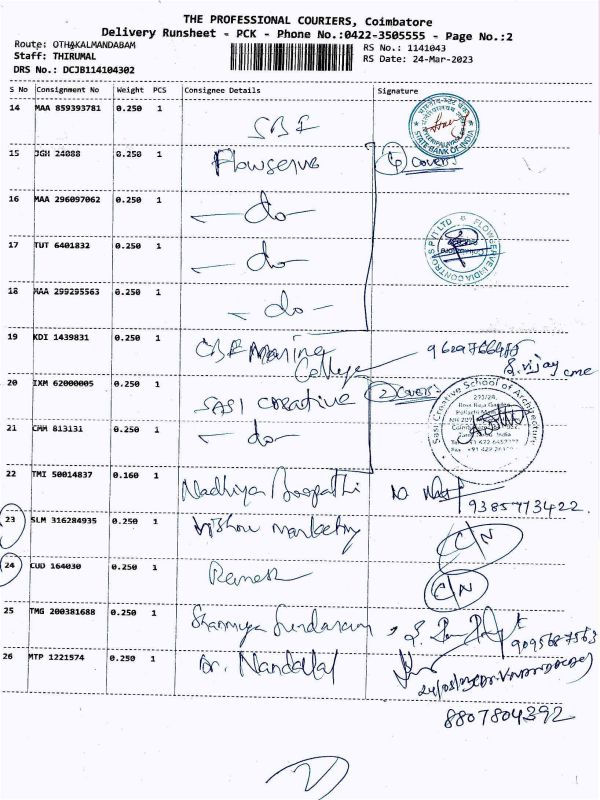 THE PROFESSIONAL COURIERS, Coimbatore
Delivery Runsheet - PCK - Phone No.:0422-3505555 - Page No.:2
Route: OTHAKALMANDABAM
RS No.: 1141043
Staff: THIRUMAL
RS Date: 24-Mar-2023
DRS No.: DCJB114104302
S No Consignment No Weight PCS Consignee Details Signature
14 MAA 859393781 0.250 1 SBI
STATE BANK OF INDIA
15 JGH 24088 0.250 1 Flowserve (4) covers
16 MAA 296097062 0.250 1 — do —
17 TUT 6401832 0.250 1 — do —
FLOWSERVE INDIA CONTROLS PVT LTD
18 MAA 299295563 0.250 1 — do —
19 KDI 1439831 0.250 1 CBE Marine College
S. Vijay CME
20 IXM 62000005 0.250 1 SASI Creative (2) covers
Sasi Creative School of Architecture
21 CMM 813131 0.250 1 — do —
22 TMI 50014837 0.160 1 Nadhiya Boopathi
9385713422
23 SLM 316284935 0.250 1 Vishnu Marketing C/N
24 CUD 164030 0.250 1 Ramesh C/N
25 TMG 200381688 0.250 1 Sharmiya Sundaram
9095687563
26 MTP 1221574 0.250 1 Dr. Nandalal
8807804392